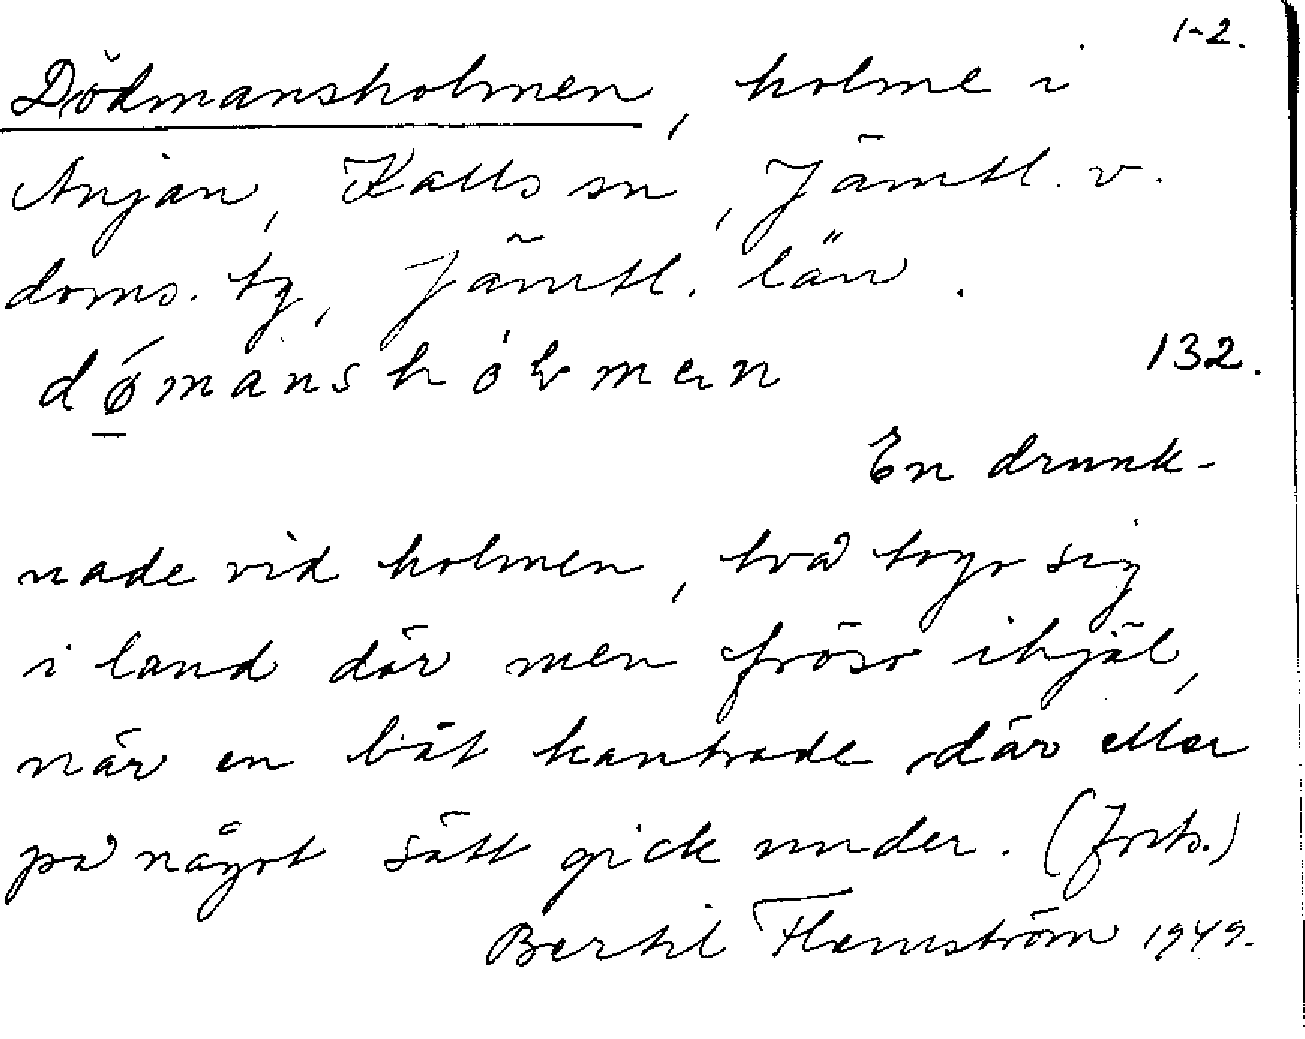 1-2.
Dödmansholmen, holme i
Anjan, Kalls sn, Jämtl. v.
doms. tg, Jämtl. län.
132.
En drunk-
nade vid holmen, två togo sig
i land där men fröso ihjäl,
när en båt kantrade där eller
på något sätt gick under. (forts.)
Bertil Flemström 1949.